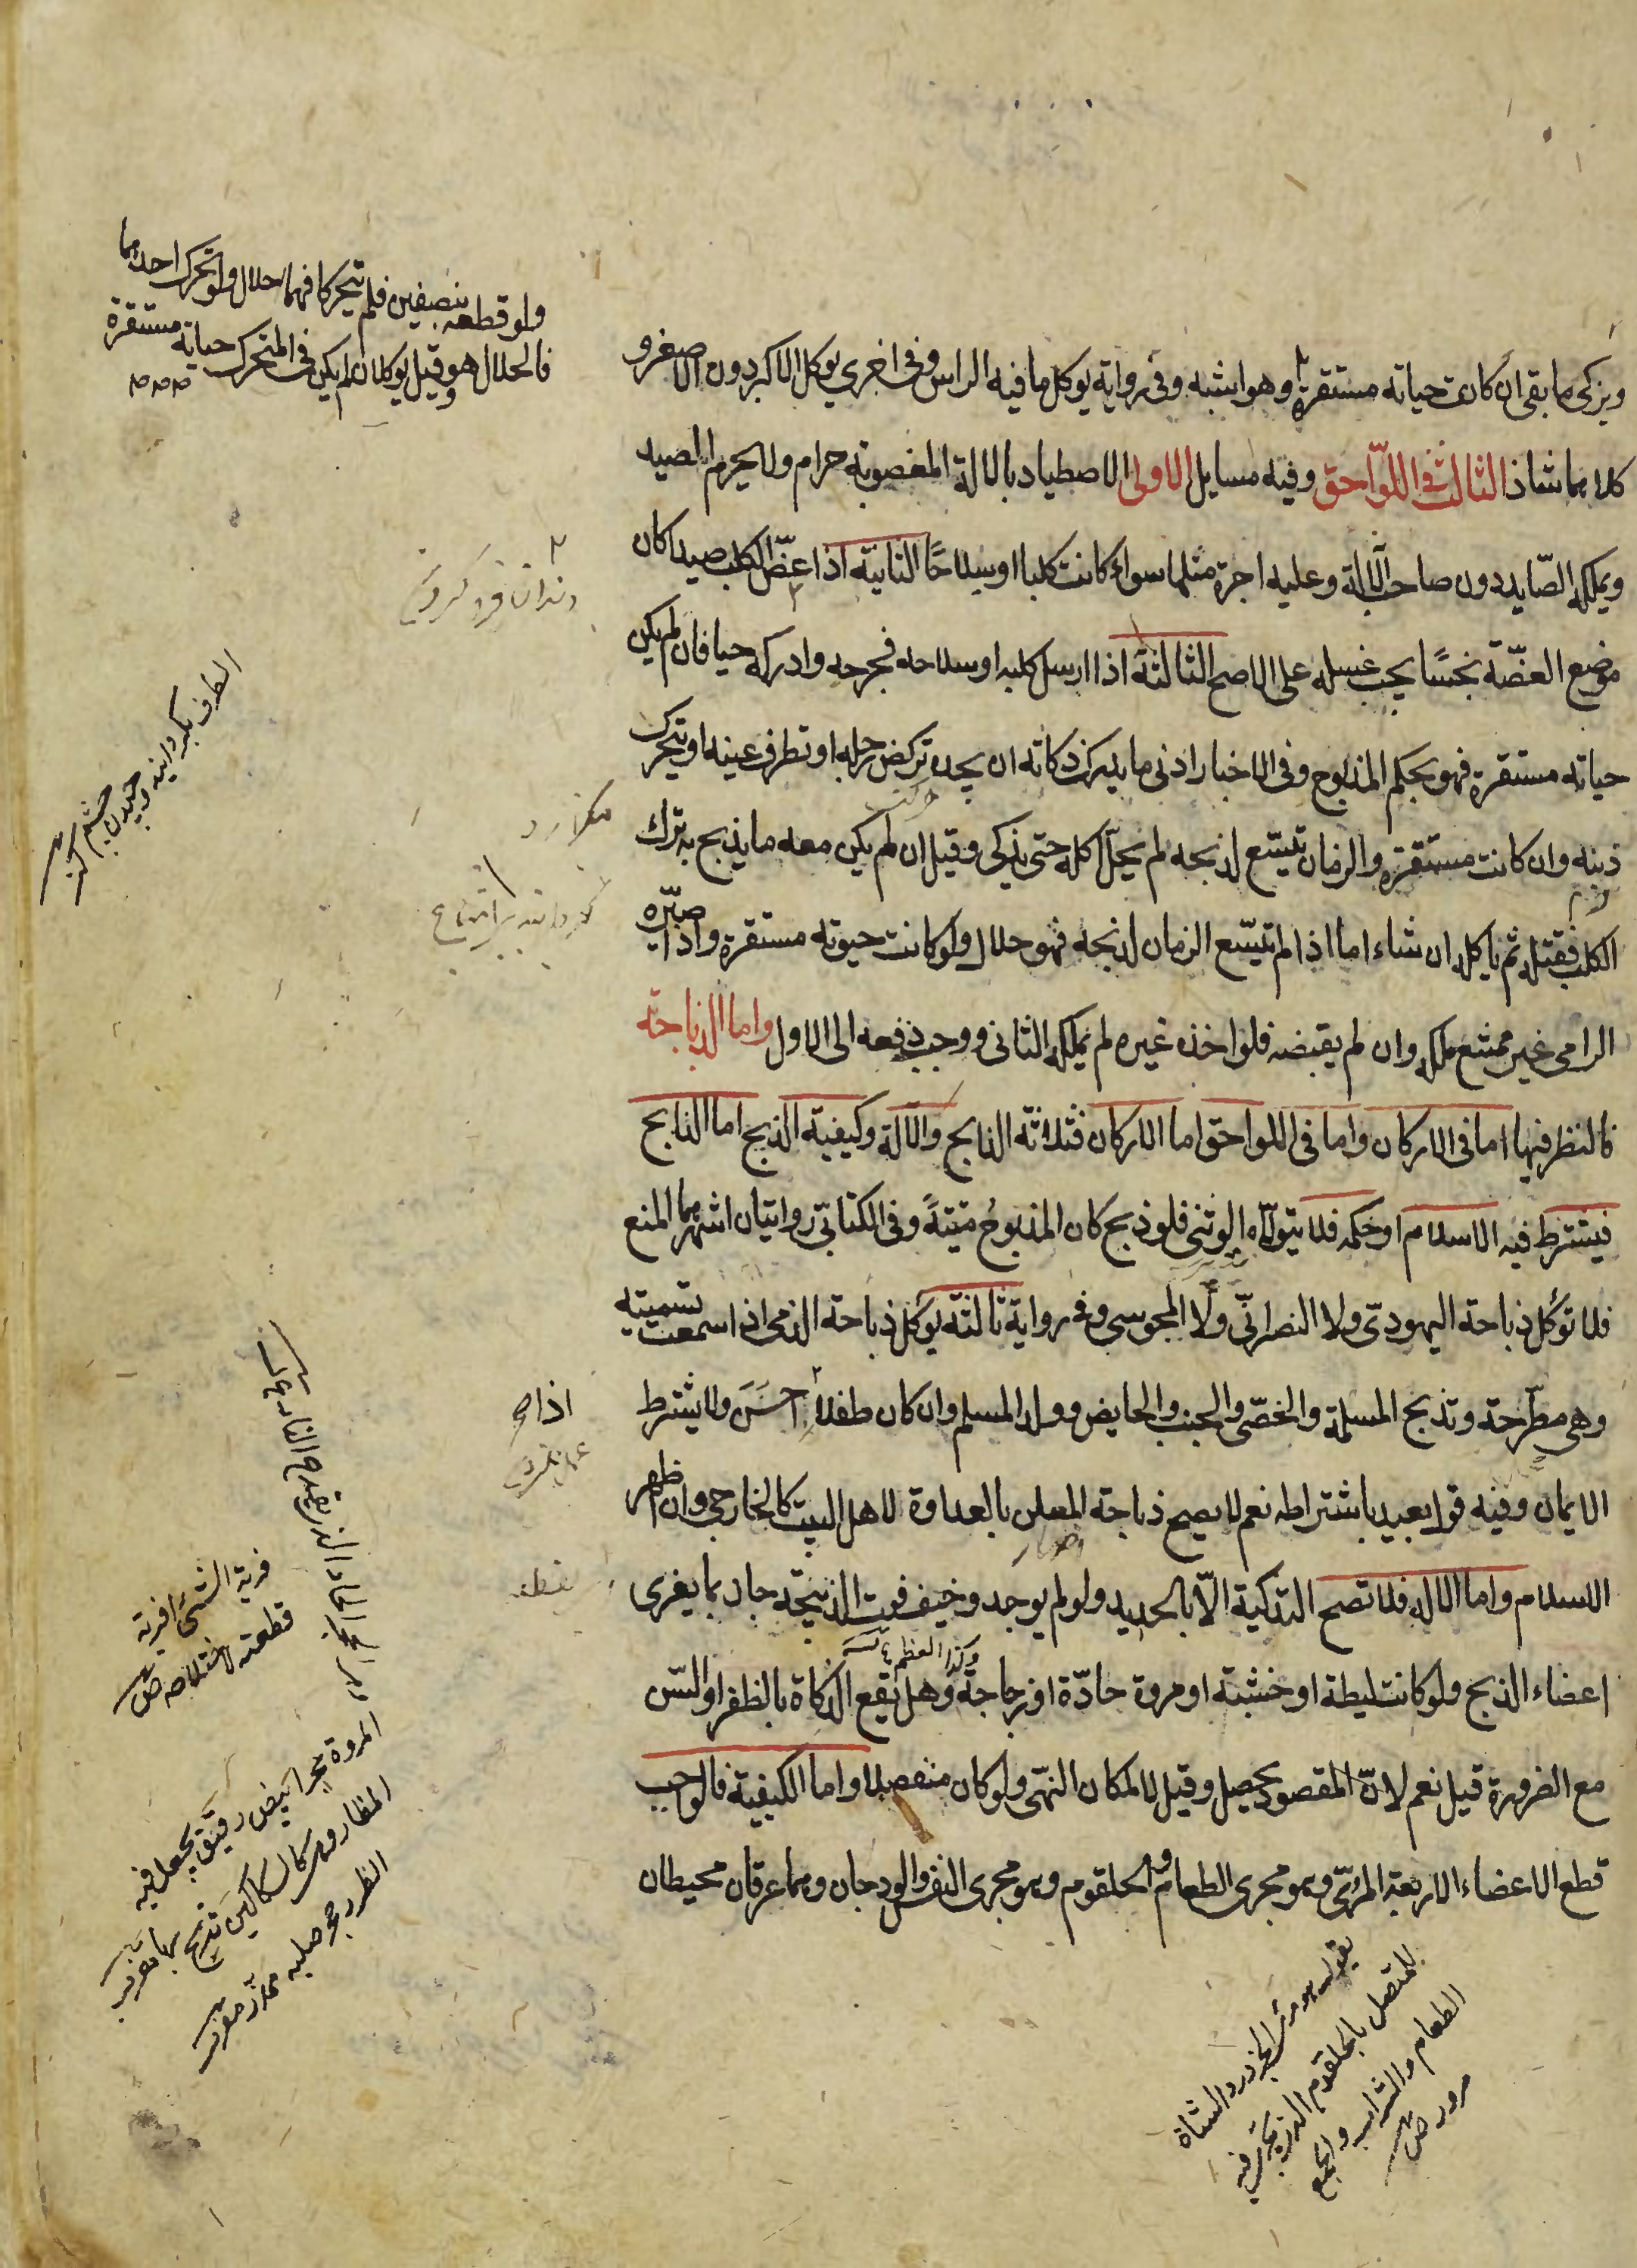 ولو قطعه بنصفين فلم يتحركا فهما حلال ولو تحرك احدهما
فالحلال هو وقيل يوكلان ان لم يكن في المتحرك حياته مستقرة
ويزكى ما بقى ان كانت حياته مستقرة وهو اشبه وفى رواية يوكل ما فيه الراس وفى اخرى يوكل الاكبر دون الاصغر و
كلاهما شاذ الثالث فى اللوّاحق وفيه مسايل الاولى الاصطياد بالالة المغصوبة حرام ولا يحرم الصيد
ويملكه الصّايد دون صاحب الالة وعليه اجرة مثلها سواء كانت كلبا او سلاحًا الثانية اذا عضّ الكلب صيدا كان
موضع العضّة نجسًا يجب غسله على الاصح الثالثة اذا ارسل كلبه او سلاحه فجرحه وادركه حيا فان لم يكن
حياته مستقرة فهو بحكم المذبوح وفى الاخبار ادنى ما يدرك ذكاته ان يجده تركض رجله او تطرف عينه او يتحرك
ذنبه وان كانت مستقرة والزمان يتسّع لذبحه لم يحلّ اكله حتى يذكى وقيل ان لم يكن معه ما يذبح به ترك
الكلب فقتله ثم ياكله ان شاء اما اذا لم يتسّع الزمان لذبحه فهو حلال ولو كانت حيوته مستقرة واذا صيّره
الرامى غير ممتنع ملكه وان لم يقبضه فلو اخذه غيره لم يملكه الثانى ووجب دفعه الى الاول واما الذباحة
فالنظر فيها اما فى الاركان واما فى اللواحق اما الاركان فثلاثة الذابح والالة وكيفية الذبح اما الذابح
فيشترط فيه الاسلام او حكمه فلا يتولاه الوثنى فلو ذبح كان المذبوح ميتةً وفى الكتابيّ روايتان اشهرهما المنع
فلا تؤكل ذباحة اليهوديّ ولا النصرانيّ ولا المجوسى وفى رواية ثالثة يؤكل ذباحة الذمى اذا سمعت تسميته
وهى مطّرحة وتذبح المسلمة والخصّى والجنب والحايض وولد المسلم وان كان طفلا احسن ولا يشترط
اذا
الايمان وفيه قول بعيد باشتراطه نعم لا يصح ذباحة المعلن بالعداوة لاهل البيت كالخارجى وان اظهر
الاسلام واما الالة فلا تصح التذكية الّا بالحديد ولو لم يوجد وخيف فوت الذبيحة جاز بما يفرى
وكذا العظم
اعضاء الذبح ولو كانت ليطة او خشبة او مروة حادّة او زجاجة وهل تقع الذكاة بالظفر او السّن
مع الضرورة قيل نعم لانّ المقصود يحصل وقيل لا لمكان النهّى ولو كان منفصلا واما الكيفية فالواجب
قطع الاعضاء الاربعة المرّى وهو مجرى الطعام والحلقوم وهو مجرى النفس والودجان وهما عرقان محيطان
فرية الشئ افرية
قطعته لاصلاحه ص
المروة حجر ابيض رقيق يجعل فيه
المظار وهى كالسكاكين تذبح بها مغرب
الظرر حجر صلب محدد مغرب
هو مرئ الجزور والشاة
المتصل بالحلقوم الذى يجرى فيه
الطعام والشراب والجمع
مرؤ ص